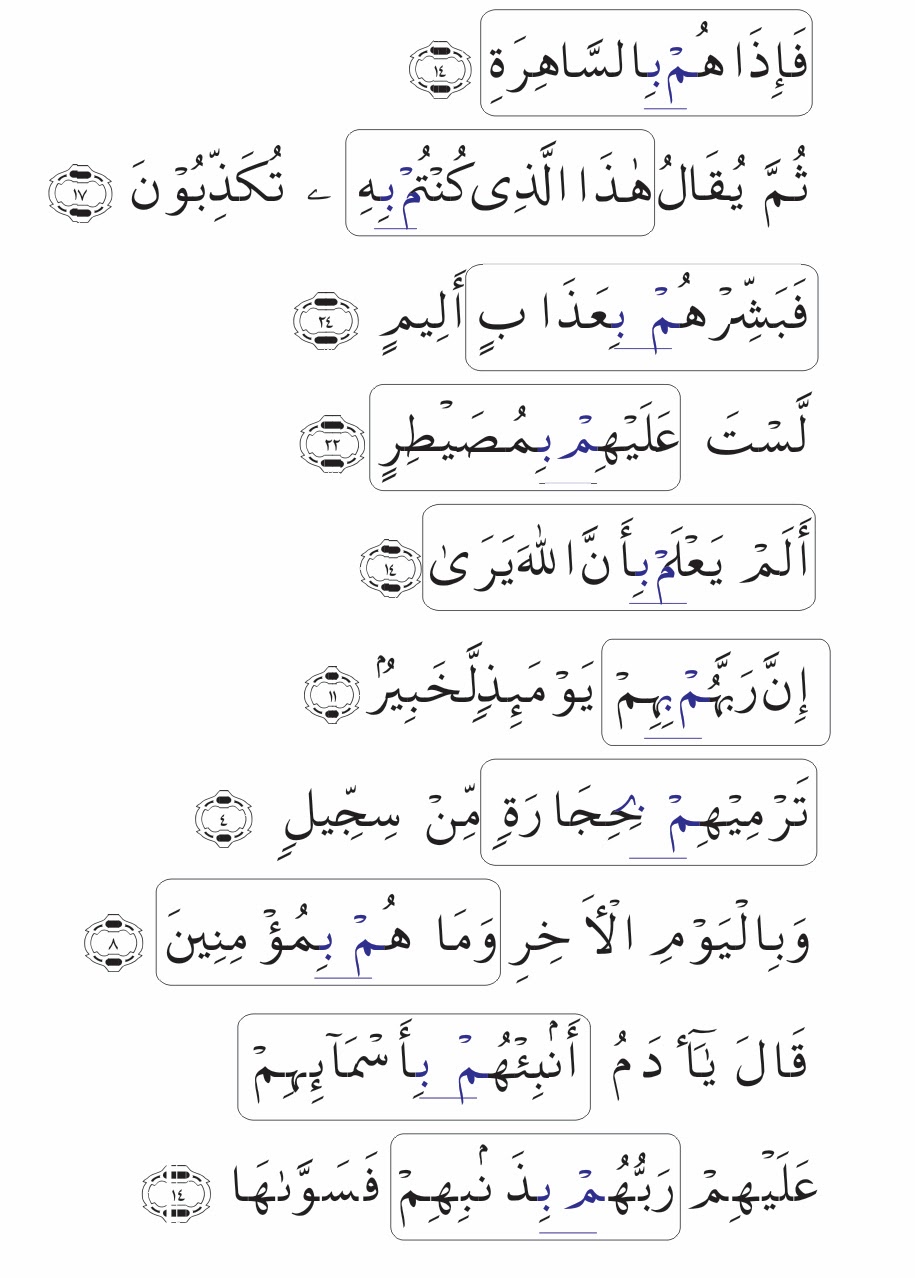 فَإِذَا هُمْ بِالسَّاهِرَةِ ١٤
ثُمَّ يُقَالُ هٰذَا الَّذِى كُنْتُمْ بِهِ ے تُكَذِّبُوْنَ ١٧
فَبَشِّرْهُمْ بِعَذَابٍ أَلِيمٍ ٢٤
لَّسْتَ عَلَيْهِمْ بِمُصَيْطِرٍ ٢٢
أَلَمْ يَعْلَمْ بِأَنَّ اللهَ يَرَىٰ ١٤
إِنَّ رَبَّهُمْ بِهِمْ يَوْمَئِذٍ لَّخَبِيرٌۢ ١١
تَرْمِيْهِمْ بِحِجَارَةٍ مِّنْ سِجِّيلٍ ٤
وَبِالْيَوْمِ الْأَخِرِ وَمَا هُمْ بِمُؤْمِنِينَ ٨
قَالَ يَٰٓـَٔادَمُ أَنۢبِئْهُمْ بِأَسْمَآئِهِمْ
عَلَيْهِمْ رَبُّهُمْ بِذَنۢبِهِمْ فَسَوَّىٰهَا ١٤